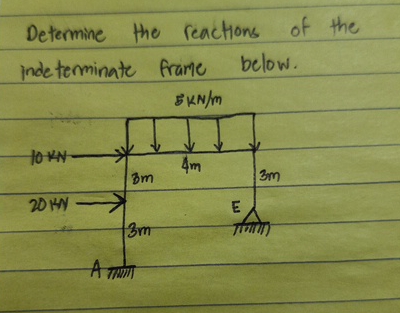 Determine the reactions of the
indeterminate frame below.
5 KN/m
10 KN
4m
3m
3m
20 KN
E
3m
A